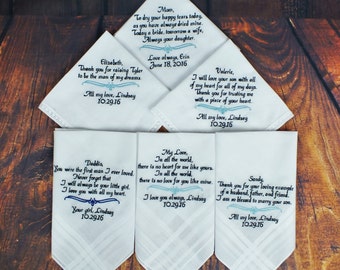 Mom,
To dry your happy tears today,
as you have always dried mine.
Today a bride, tomorrow a wife,
Always your daughter.
Love always, Erin
June 18, 2016
Elizabeth,
Thank you for raising Tyler
to be the man of my dreams.
All my love, Lindsay
10.29.16
Valerie,
I will love your son with all
of my heart for all of my days.
Thank you for trusting me
with a piece of your heart.
All my love, Lindsay
10.29.16
Daddio,
You were the first man I ever loved.
Never forget that
I will always be your little girl.
I love you with all my heart.
Your girl, Lindsay
10.29.16
My Love,
In all the world,
there is no heart for me like yours.
In all the world,
there is no love for you like mine.
I love you always, Lindsay
10.29.16
Sandy,
Thank you for your loving example
of a husband, father, and friend.
I am so blessed to marry your son.
All my love, Lindsay
10.29.16